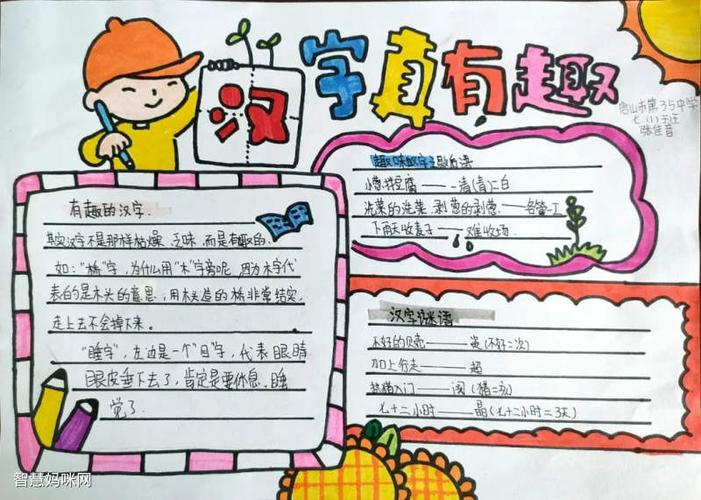 汉字真有趣
唐山市第35中学
七(1)
张佳音
有趣的汉字.
其实汉字不是那样枯燥、乏味,而是有趣的.
如:“桥”字,为什么用“木”字旁呢,因为木字代
表的是木头的意思,用木头造的桥非常结实,
走上去不会掉下来.
“睡字”,左边是一个“目”字,代表眼睛
眼皮垂下去了,肯定是要休息、睡
觉了.
趣味汉字之歇后语
小葱拌豆腐——一清(青)二白
洗菜的洗菜,剥葱的剥葱——各管一工
下雨天收麦子——难收场.
汉字谜语
不好的贝壳——
加上行走——超
熟猪入门——阅
七十二小时——晶(七十二小时=3天)
智慧妈咪网